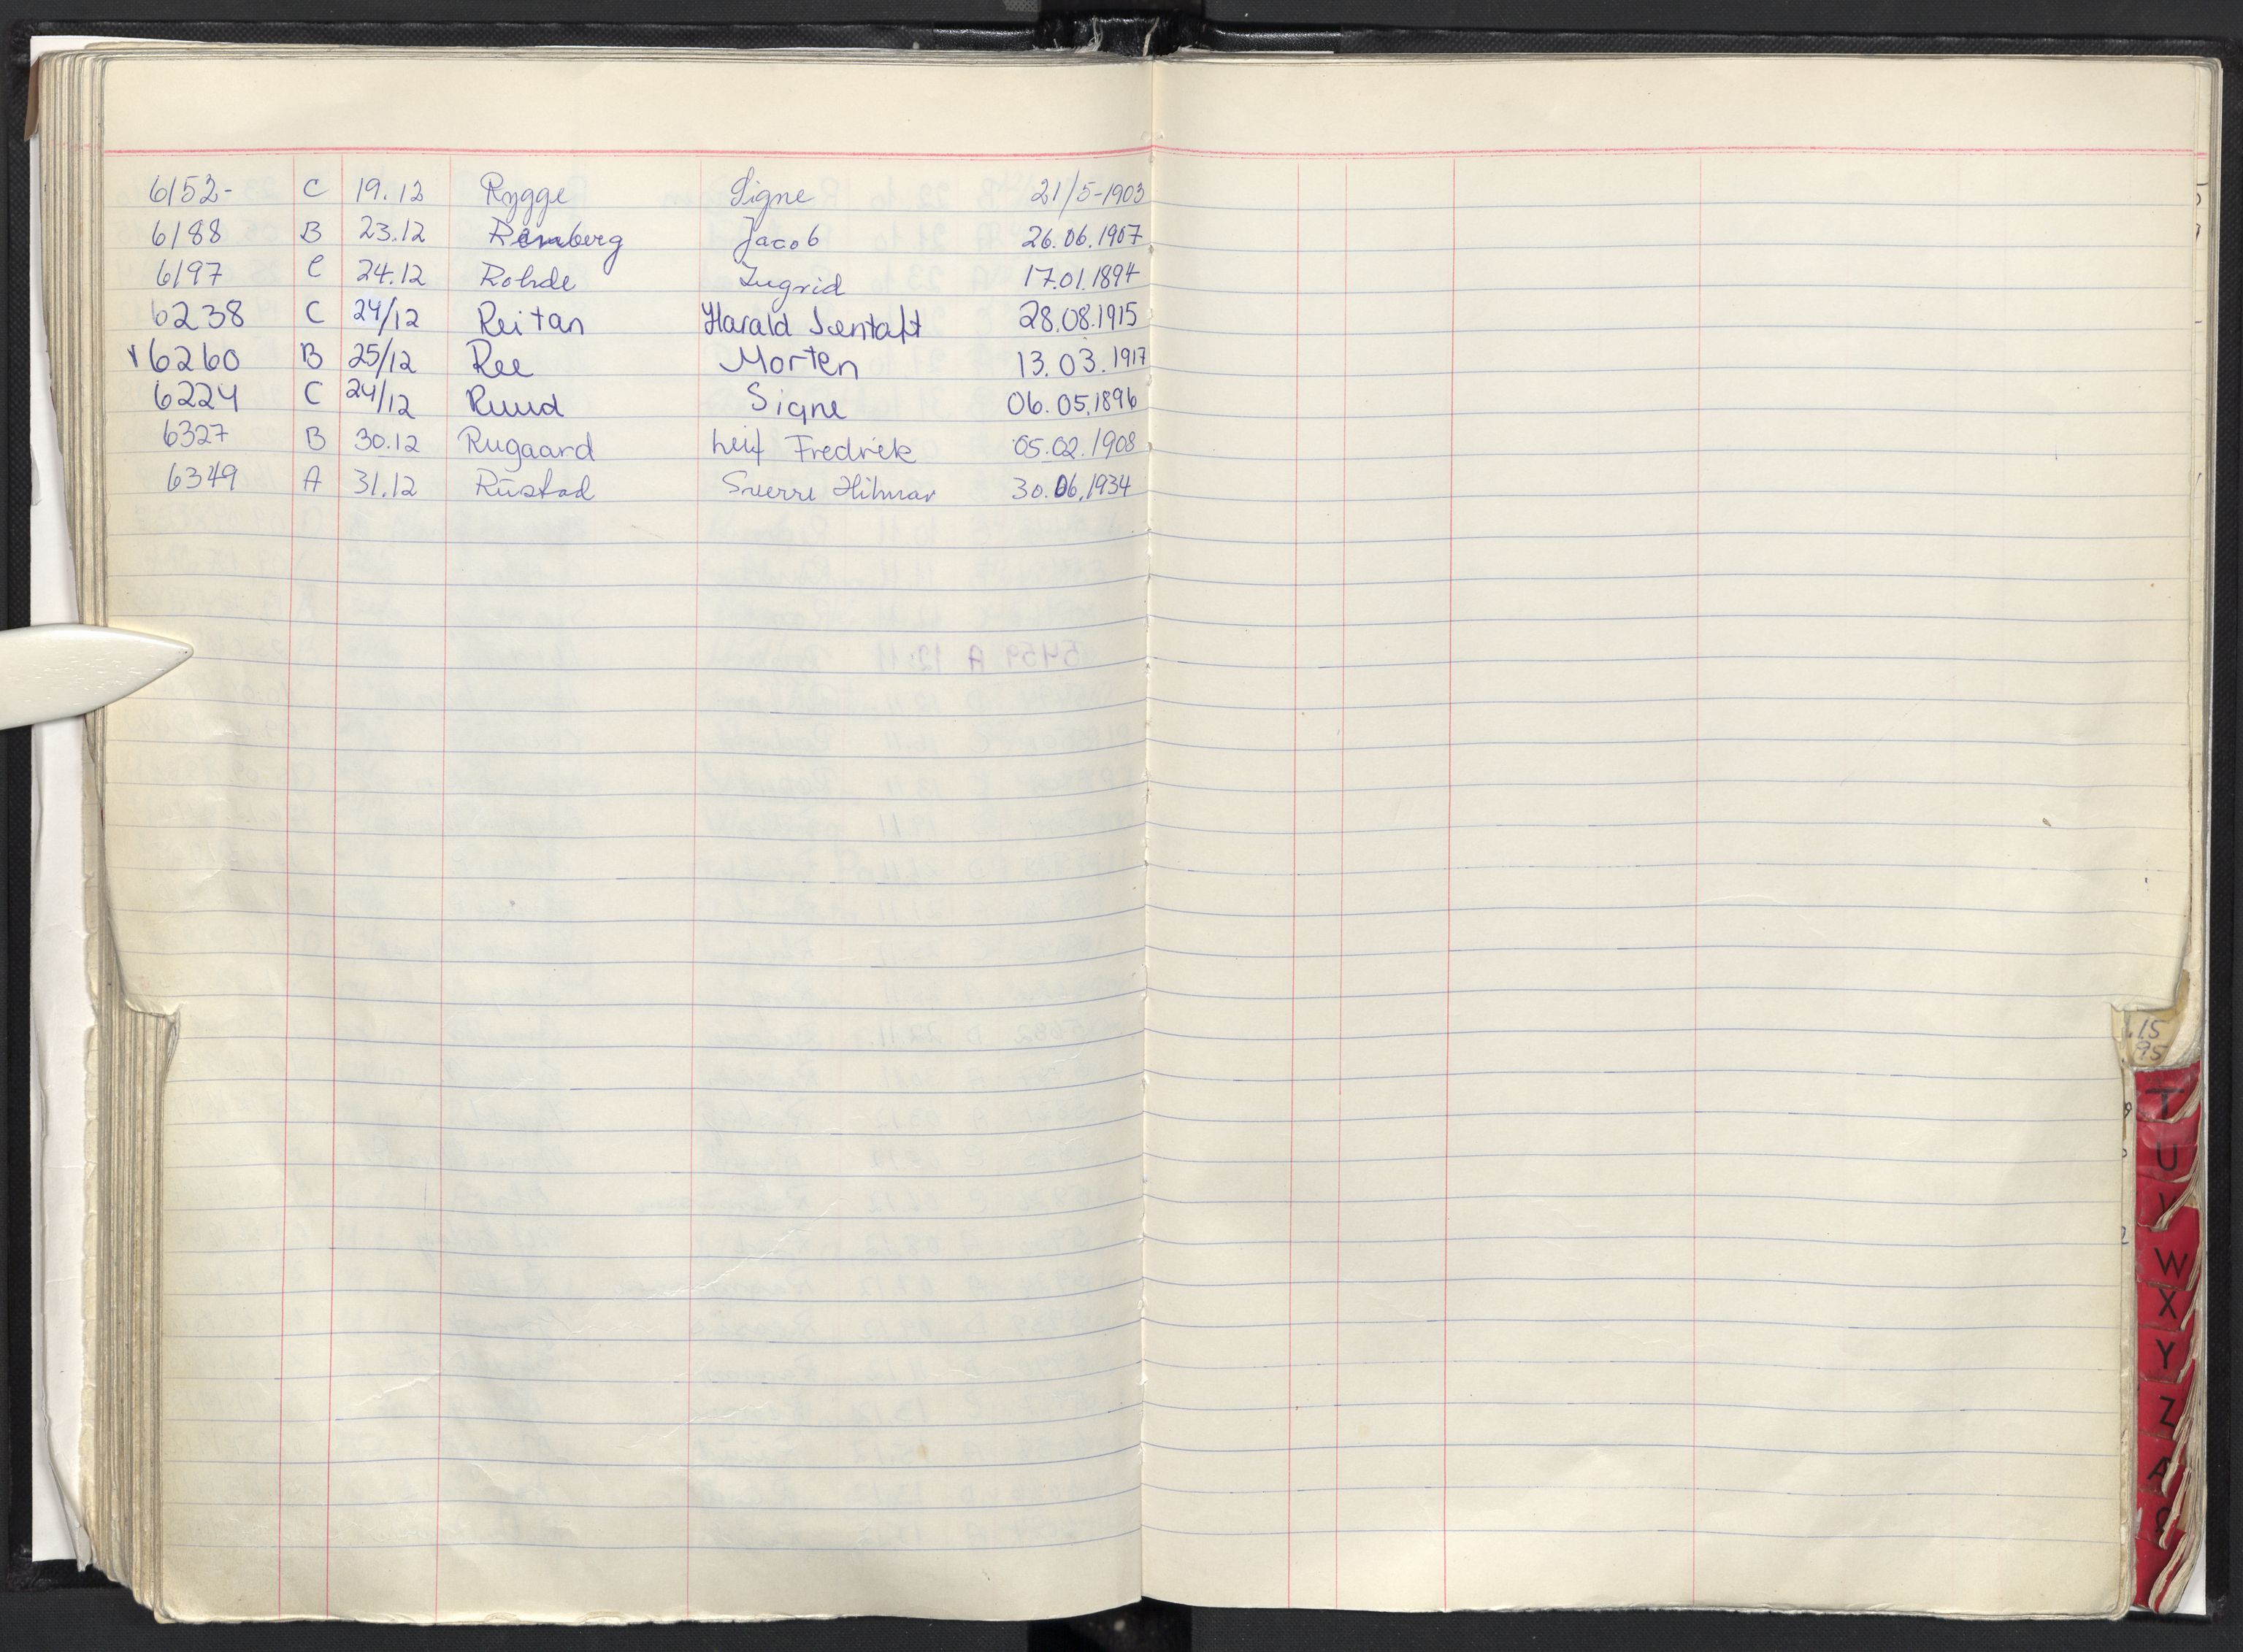 6152- C 19.12 Rygge Signe 21/5-1903
6188 B 23.12 Remberg Jacob 26.06.1907
6197 C 24.12 Rohde Ingrid 17.01.1894
6238 C 24/12 Reitan Harald 28.08.1915
6260 B 25/12 Ree Morten 13.03.1917
6224 C 24/12 Ruud Signe 06.05.1896
6327 B 30.12 Rugaard Leif Fredrik 05.02.1908
6349 A 31.12 Rustad Sverre Hilmar 30.06.1934
15
95
T
U
V
W
X
Y
Z